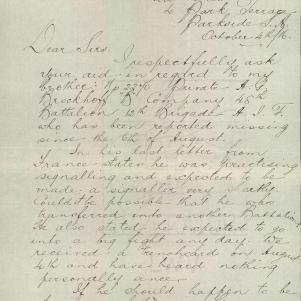 4 Park Terrace
Parkside S.A.
October 4th/16.
Dear Sirs.
I respectfully ask
your aid in regard to my
brother: No 2270 Private A. G.
Brockhoff D Company 48th
Battalion 12th Brigade A. I. F.
who has been reported missing
since the 6th of August.
In his last letter from
France states he was practising
signalling and expected to be
made a signaller very shortly.
Could it be possible that he was
transferred into another Battalion.
He also stated he expected to go
into a big fight any day. We
received a french card on August
4th and have heard nothing
personally since.
If he should happen to be